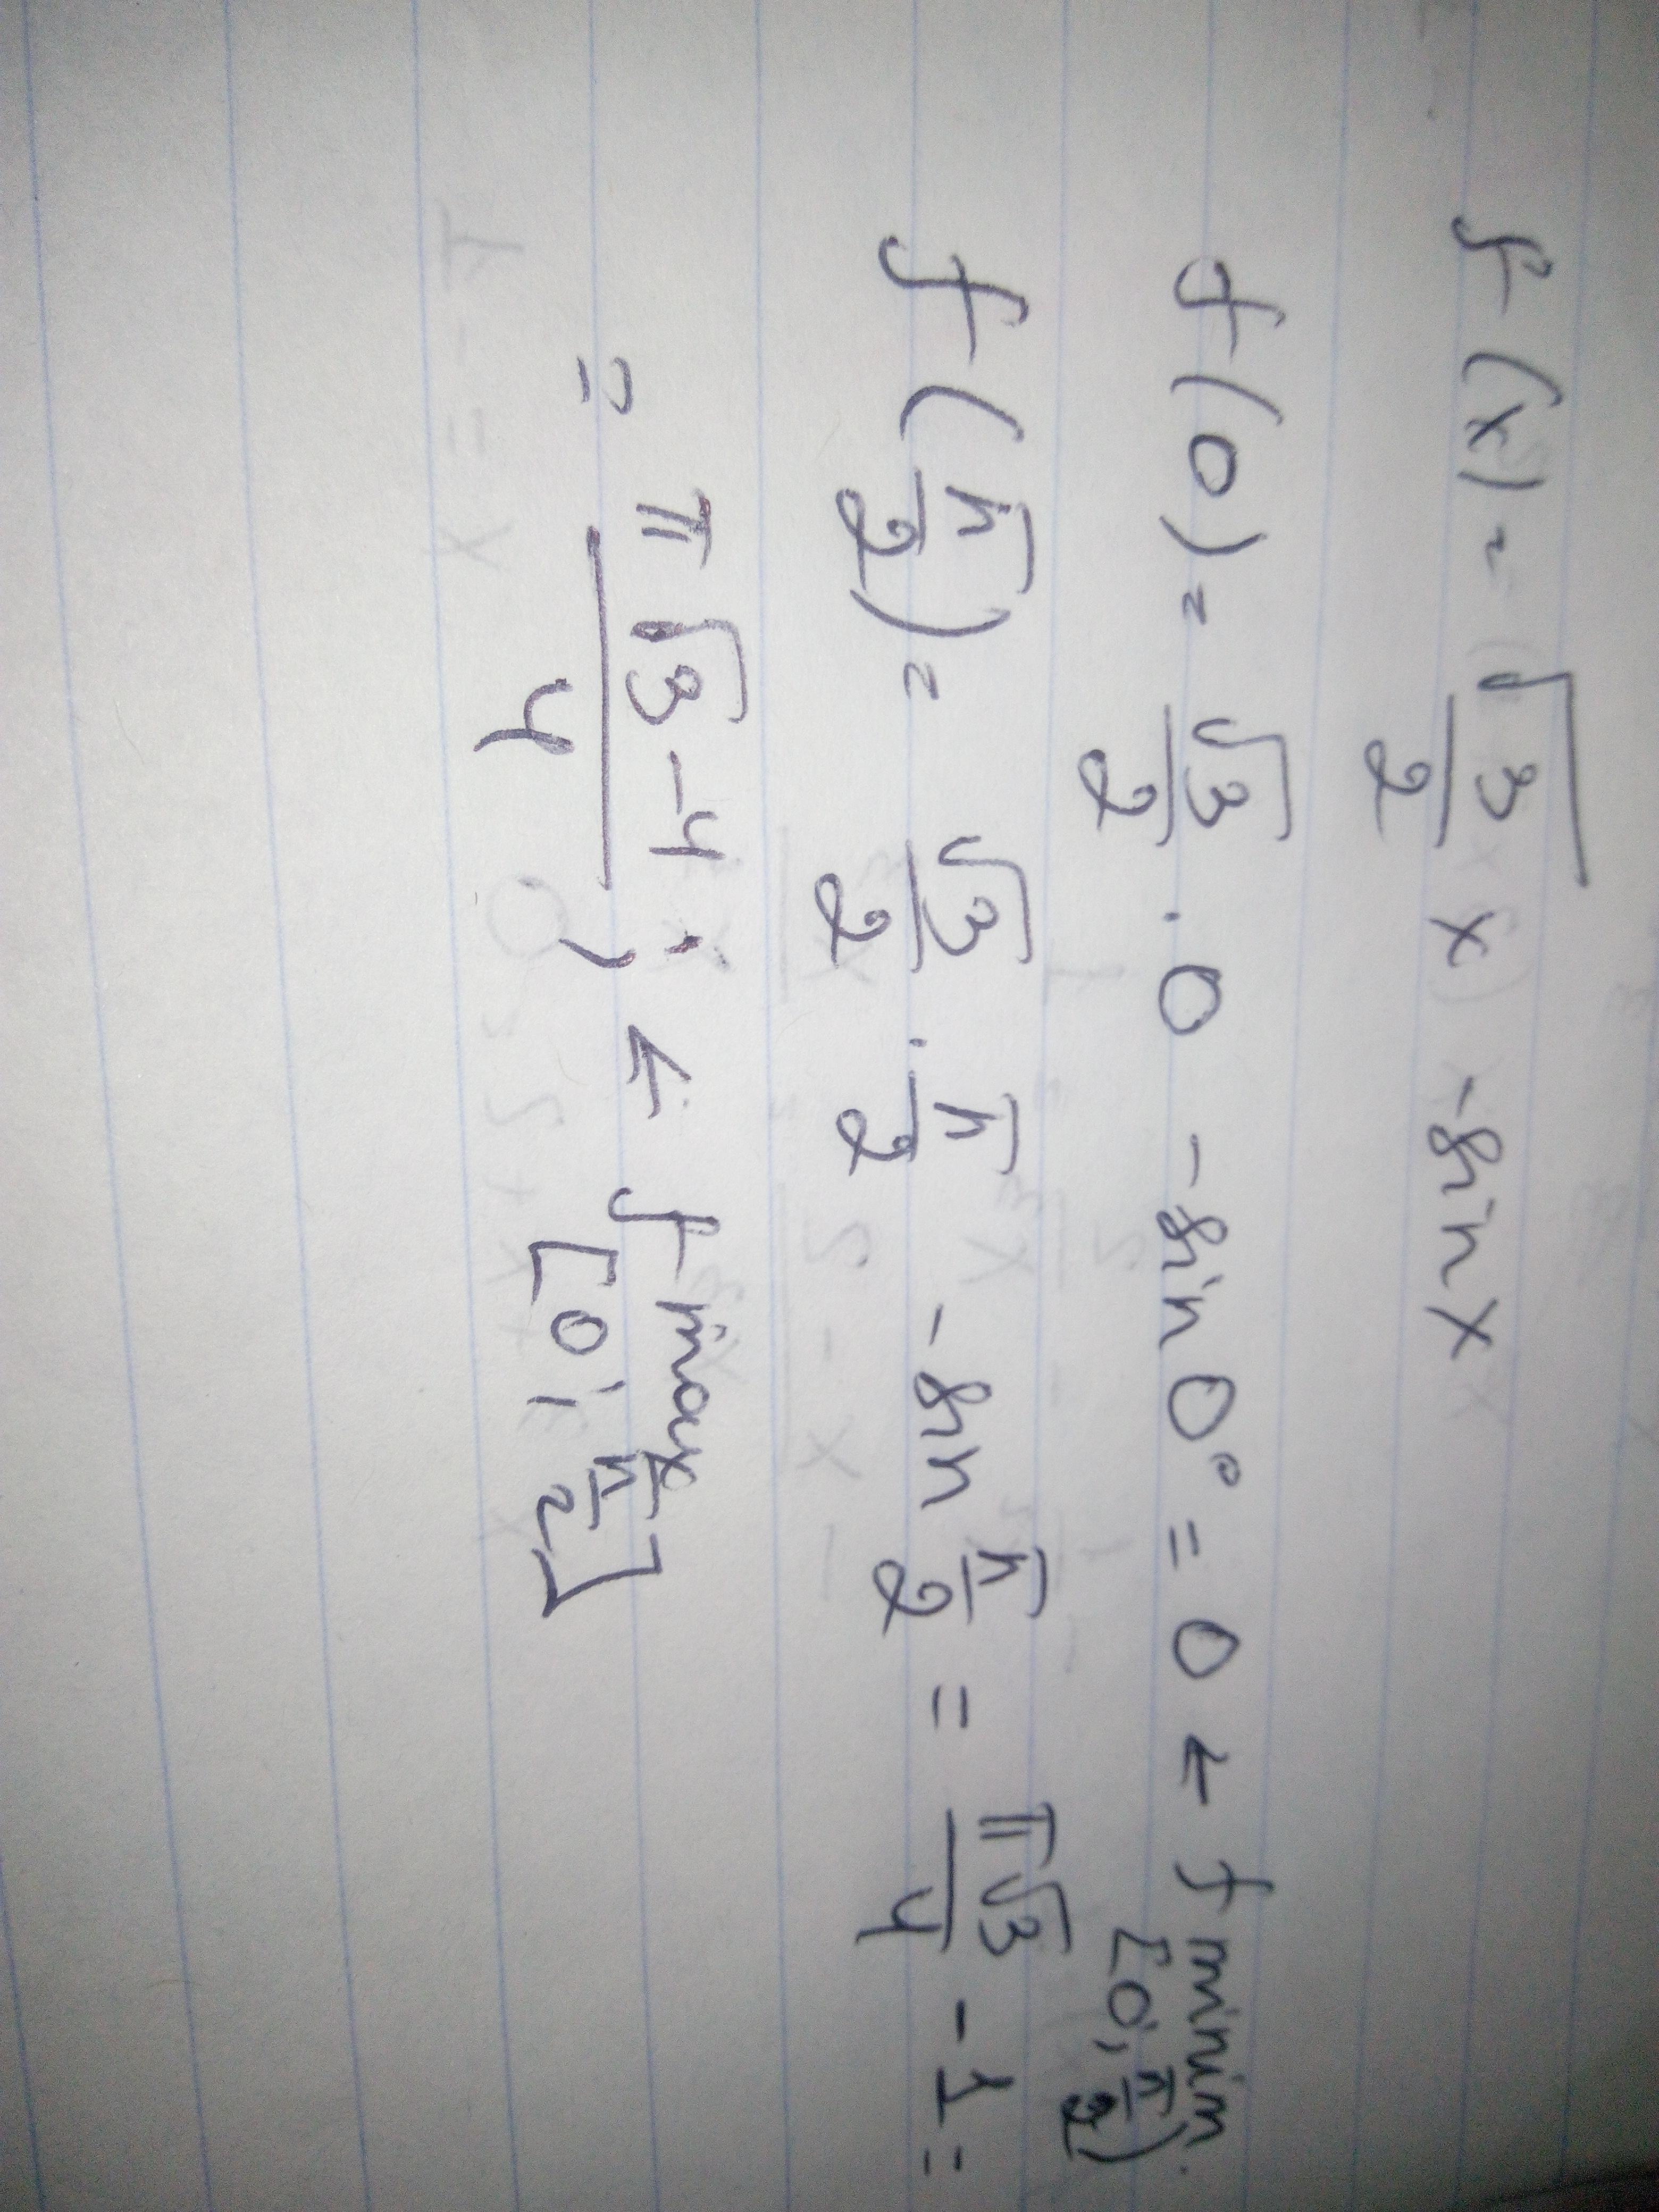 f(x) = √3/2 x - sin x
f(0) = √3/2 · 0 - sin 0° = 0 ← f minim. [0; π/2]
f(π/2) = √3/2 · π/2 - sin π/2 = π√3/4 - 1 =
= π√3-4/4 ; ← f max [0; π/2]